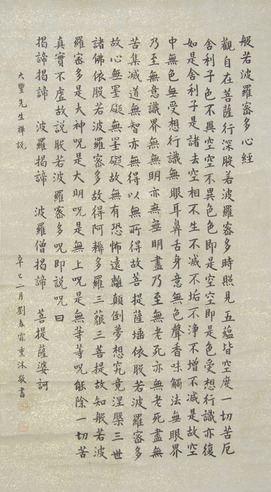 般若波羅蜜多心經
觀自在菩薩行深般若波羅蜜多時照見五蘊皆空度一切苦厄
舍利子色不異空空不異色色即是空空即是色受想行識亦復
如是舍利子是諸法空相不生不滅不垢不淨不增不減是故空
中無色無受想行識無眼耳鼻舌身意無色聲香味觸法無眼界
乃至無意識界無無明亦無無明盡乃至無老死亦無老死盡無
苦集滅道無智亦無得以無所得故菩提薩埵依般若波羅蜜多
故心無罣礙無罣礙故無有恐怖遠離顛倒夢想究竟涅槃三世
諸佛依般若波羅蜜多故得阿耨多羅三藐三菩提故知般若波
羅蜜多是大神咒是大明咒是無上咒是無等等咒能除一切苦
真實不虛故說般若波羅蜜多咒即說咒曰
揭諦揭諦 波羅揭諦 波羅僧揭諦 菩提薩婆訶
大 先生 說
辛巳二月劉春霖熏沐敬書